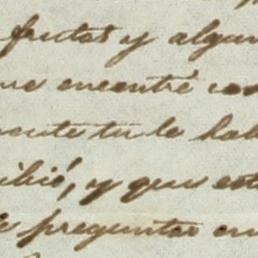 frutas y algun
me encontré con
mente tu le hab
cibió, y que est
de preguntar en